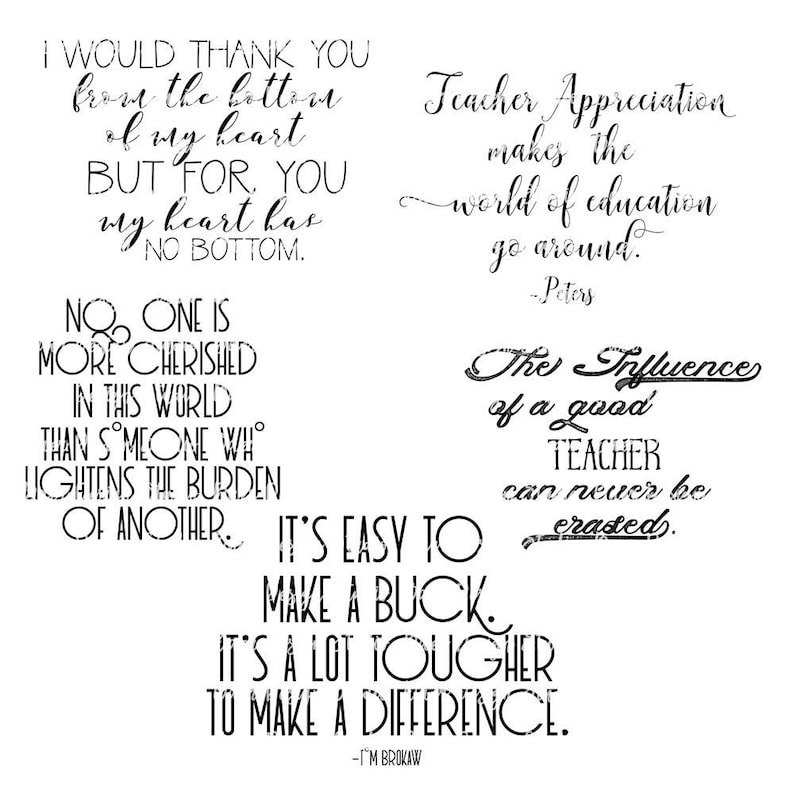 I WOULD THANK YOU
from the bottom
of my heart
BUT FOR, YOU
my heart has
NO BOTTOM.
Teacher Appreciation
makes the
world of education
go around.
-Peters
NO ONE IS
MORE CHERISHED
IN THIS WORLD
THAN SOMEONE WHO
LIGHTENS THE BURDEN
OF ANOTHER.
The Influence
of a good
TEACHER
can never be
erased.
IT'S EASY TO
MAKE A BUCK.
IT'S A LOT TOUGHER
TO MAKE A DIFFERENCE.
-TOM BROKAW